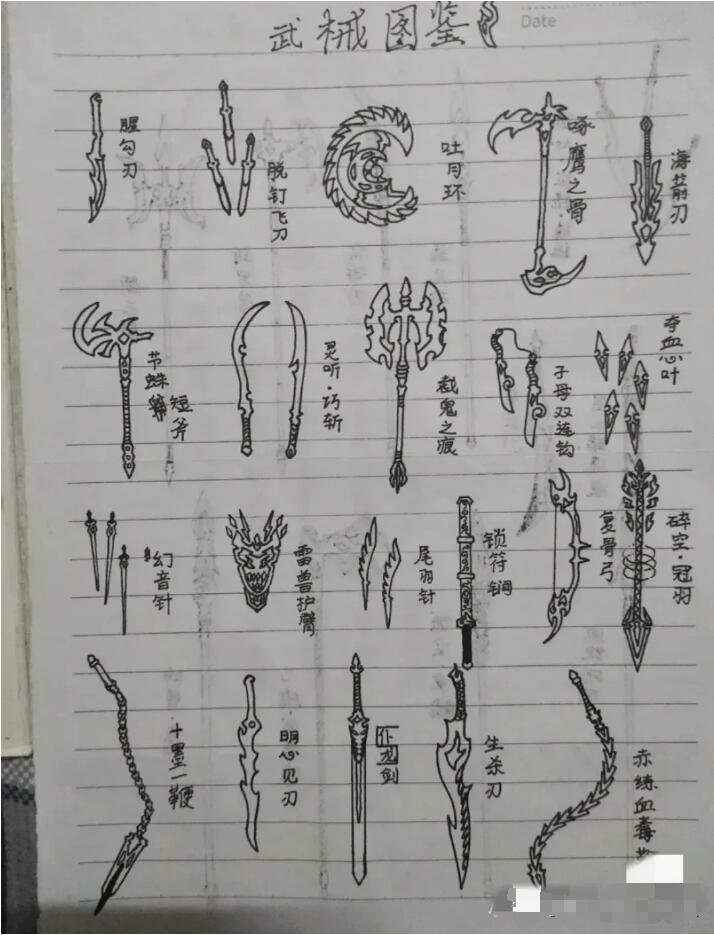 武械图鉴
Date
腥勾刃
脱钉飞刀
吐月环
啄鹰之骨
海箭刃
节蛛
短斧
灵听·巧斩
截鬼之痕
子母双连钩
夺血心叶
幻音针
雷兽护臂
尾羽针
锁符锏
复骨弓
碎空·冠羽
十墨一鞭
明心见刃
仆龙剑
生杀刃
赤练血毒